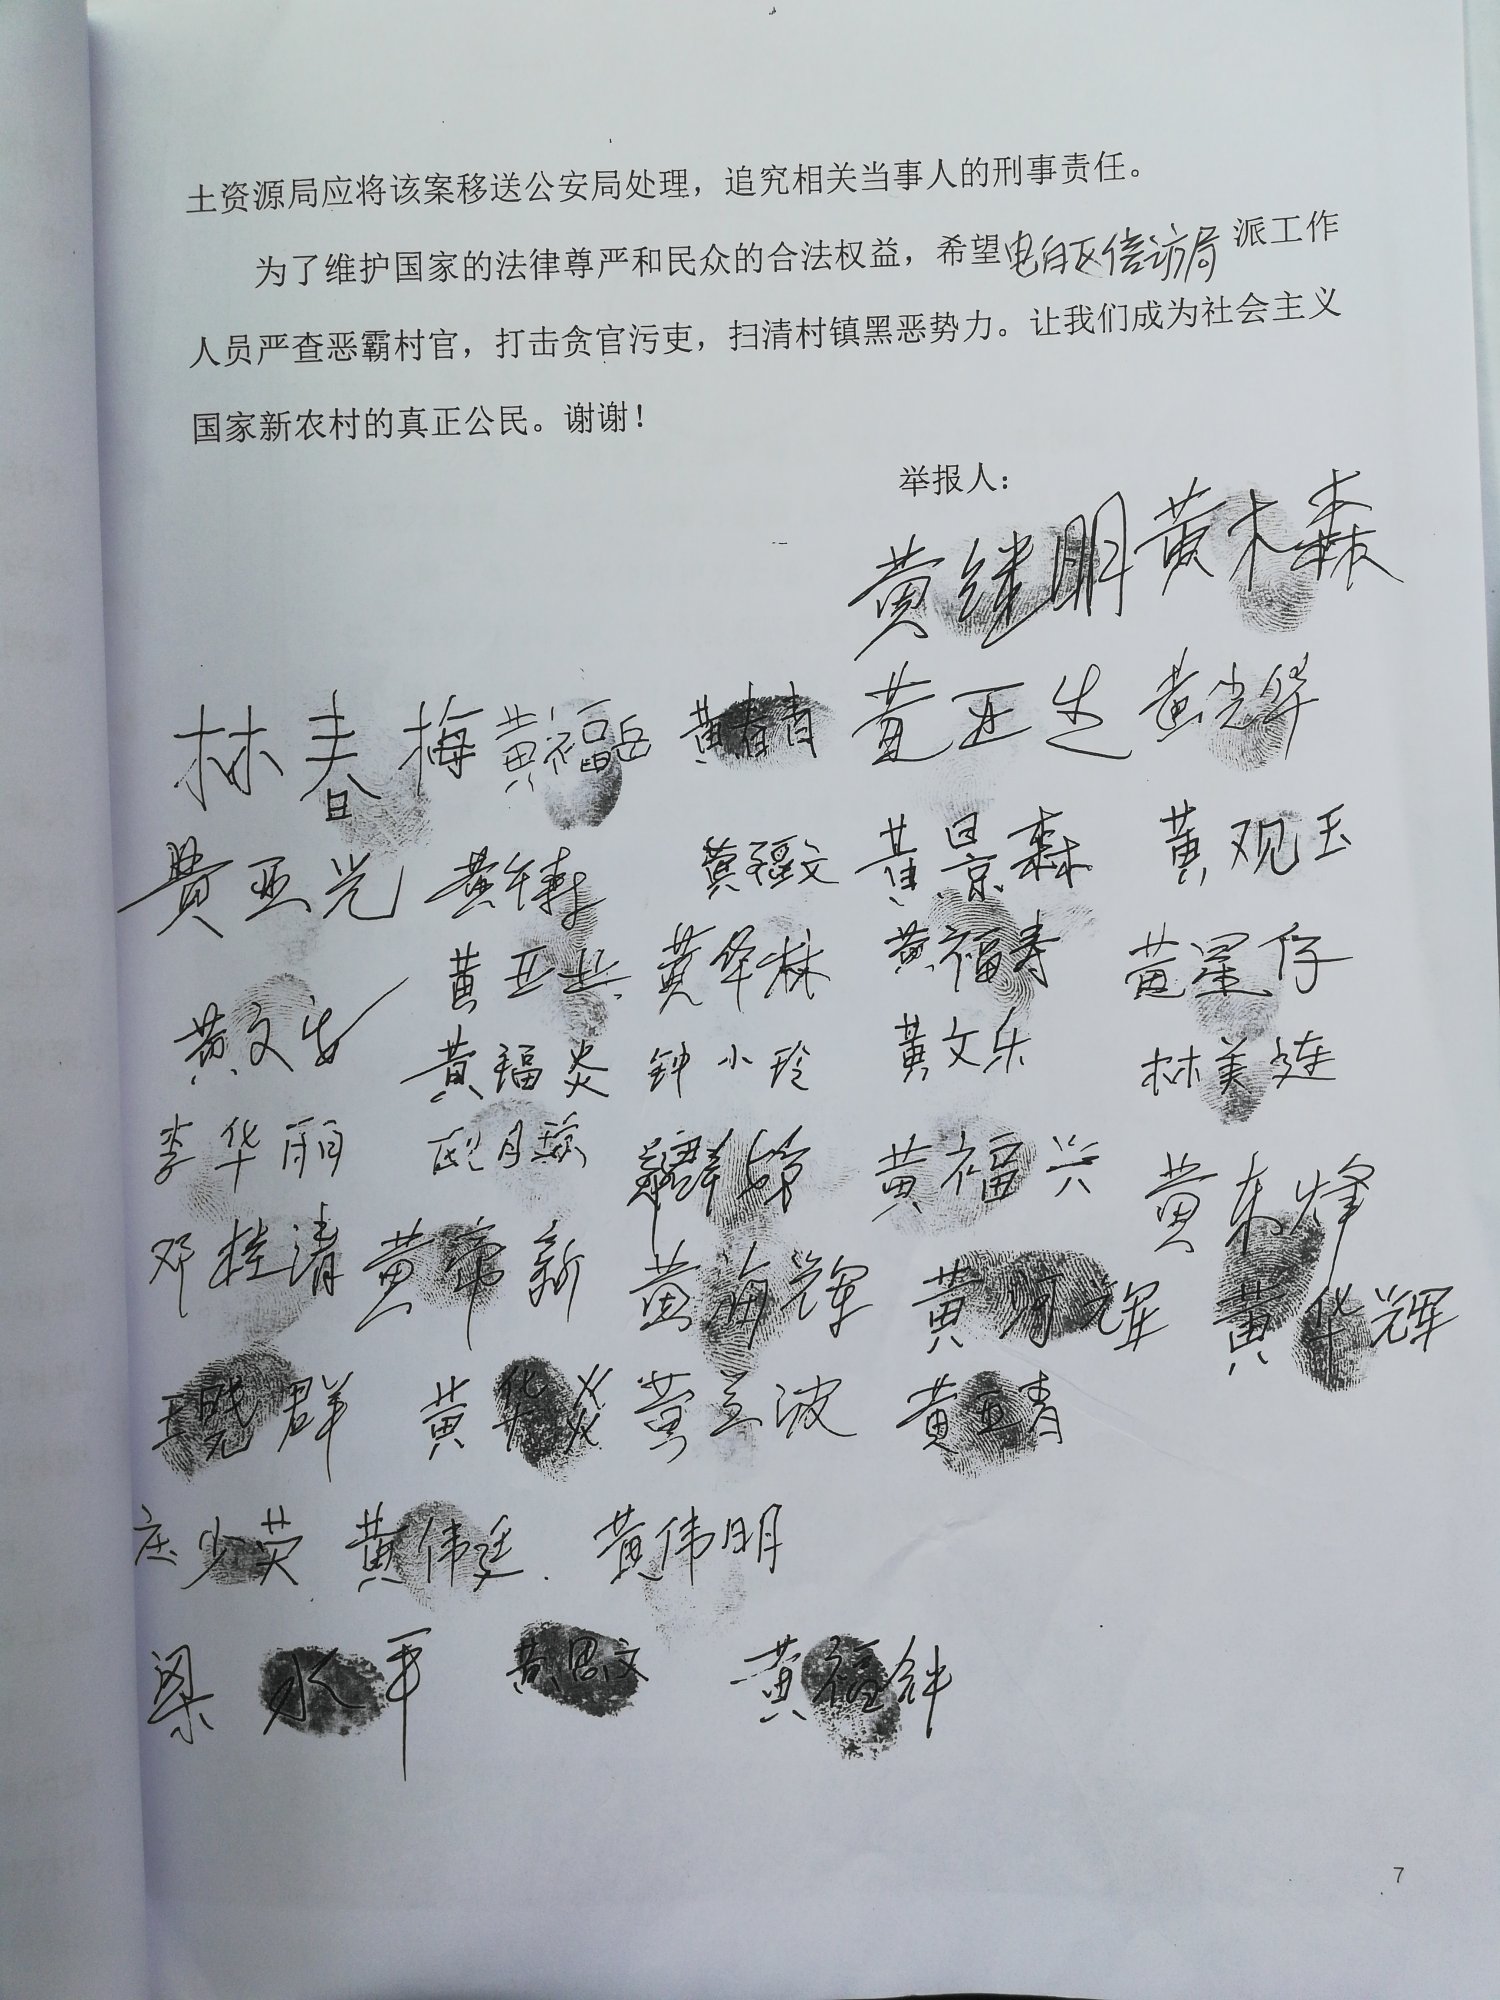 土资源局应将该案移送公安局处理，追究相关当事人的刑事责任。
为了维护国家的法律尊严和民众的合法权益，希望电白区信访局派工作
人员严查恶霸村官，打击贪官污吏，扫清村镇黑恶势力。让我们成为社会主义
国家新农村的真正公民。谢谢！
举报人：
黄继明 黄木森
林春梅 黄福岳 黄春青 黄正生 黄光华
黄亚光 黄福文 黄景森 黄观玉
黄亚兴 黄华林 黄福寿 黄星仔
黄文安 黄福炎 钟小玲 黄文乐 林美连
李华丽 黄福兴 黄东烽
邓桂清 黄帝新 黄海辉 黄阿辉 黄华辉
王晓群 黄华焱 黄立波 黄亚青
庄少荧 黄伟廷 黄伟明
梁水平 黄思文 黄福钟
7